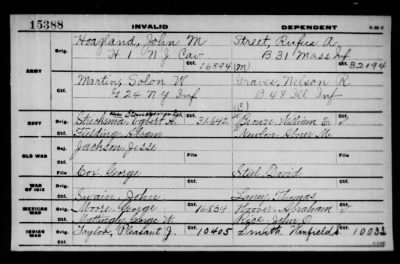 15388 INVALID DEPENDENT
ARMY
Orig. Hoagland, John M Street, Rufus A.
H 1 N J Cav B 31 Mass Inf
Ctf. 16894 (M) Ctf. 82194
Ctf. Martin, Solon W Graves, Nelson R
G 24 N Y Inf B 48 Inf
(C)
NAVY
Orig. Egbert H. 31,642 Brown, William E.
Ctf. Fielding, Newton M.
OLD WAR
Rej. Jackson, Jesse
File File
Ctf. Cox, George Steel, David
WAR OF 1812
Orig. Swain, John Thomas
MEXICAN WAR
Orig. Moore, George Ctf. 16834 Hoover, Abraham
Ctf. Mattingly, George W. Rice, John O.
INDIAN WAR
Orig. Taylor, Pleasant J. Ctf. 10405 Smith, Winfield S. Ctf. 1003
Ctf.